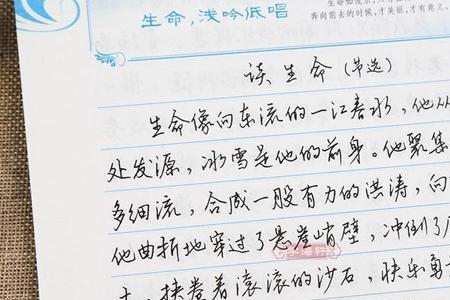 奔向前去的时候，才美丽，才有意义。
生命，浅吟低唱
谈生命（节选）
生命像向东流的一江春水，他从
处发源，冰雪是他的前身。他聚集
多细流，合成一股有力的洪涛，向
他曲折地穿过了悬崖峭壁，冲倒了
挟卷着滚滚的沙石，快乐勇